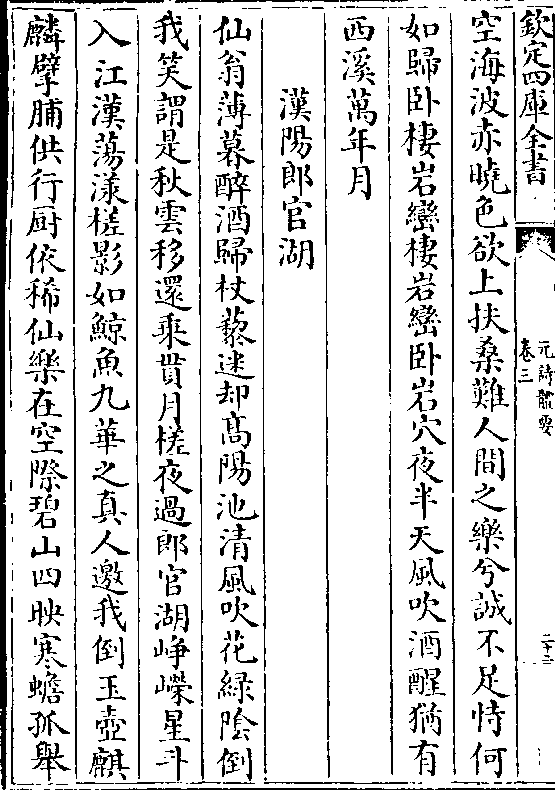 欽定四庫全書
元詩體要
卷三
二十二
空海波赤曉色欲上扶桑難人間之樂兮誠不足恃何
如歸卧棲岩巒棲岩巒卧岩穴夜半天風吹酒醒猶有
西溪萬年月
漢陽郎官湖
仙翁薄暮醉酒歸杖藜迷却髙陽池清風吹花緑陰倒
我笑謂是秋雲移還乘貫月槎夜過郎官湖崢嶸星斗
入江漢蕩漾槎影如鯨魚九華之真人邀我倒玉壺麒
麟擘脯供行厨依稀仙樂在空際碧山四映寒蟾孤舉